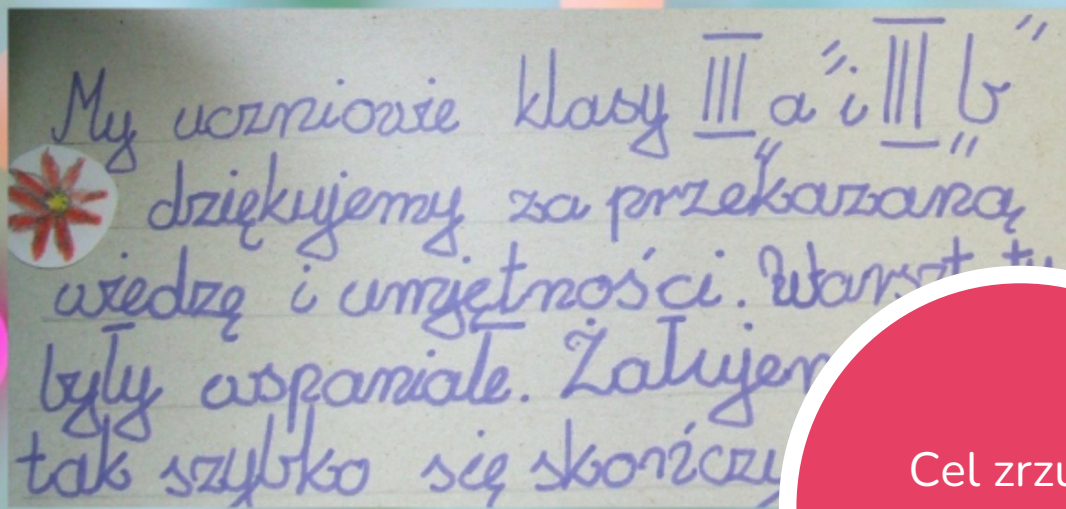 My uczniowie klasy III „a” i III „b”
dziękujemy za przekazaną
wiedzę i umiejętności.
były wspaniałe.
tak szybko się
Cel